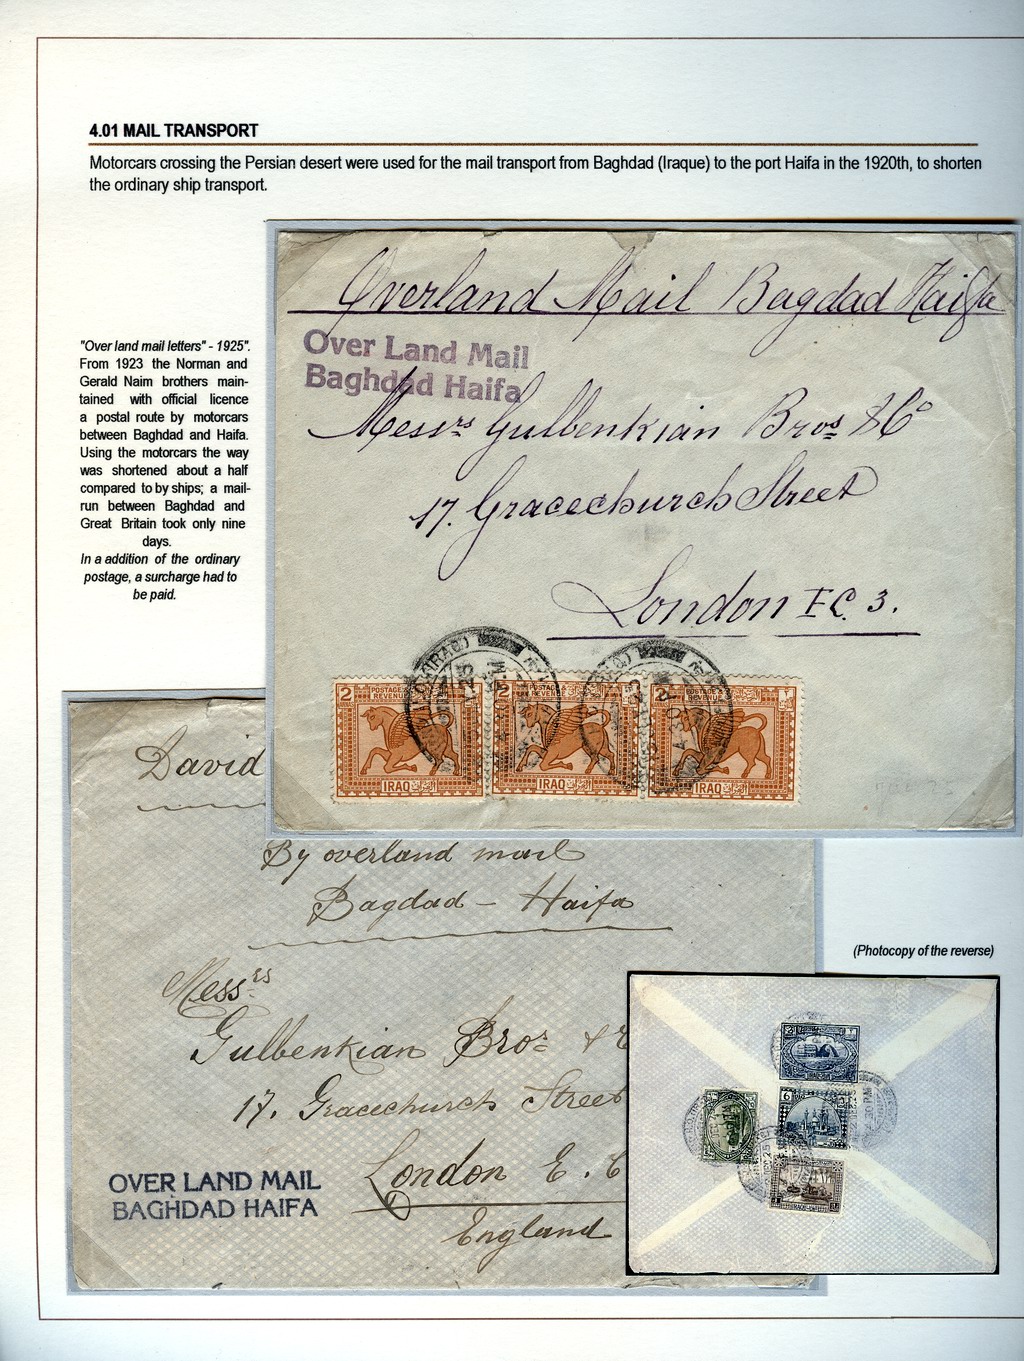 4.01 MAIL TRANSPORT
Motorcars crossing the Persian desert were used for the mail transport from Baghdad (Iraque) to the port Haifa in the 1920th, to shorten
the ordinary ship transport.
"Over land mail letters" - 1925".
From 1923 the Norman and
Gerald Naim brothers main-
tained with official licence
a postal route by motorcars
between Baghdad and Haifa.
Using the motorcars the way
was shortened about a half
compared to by ships; a mail-
run between Baghdad and
Great Britain took only nine
days.
In a addition of the ordinary
postage, a surcharge had to
be paid.
Overland Mail Bagdad Haifa
Over Land Mail
Baghdad Haifa
Messrs Gulbenkian Bros & Co
17. Gracechurch Street
London E.C. 3.
2 POSTAGE & REVENUE
IRAQ
2 POSTAGE & REVENUE
IRAQ
2 POSTAGE & REVENUE
IRAQ
David
By overland mail
Bagdad - Haifa
Messrs
Gulbenkian Bros &
17. Gracechurch Street
London E. C
England
OVER LAND MAIL
BAGHDAD HAIFA
(Photocopy of the reverse)
6